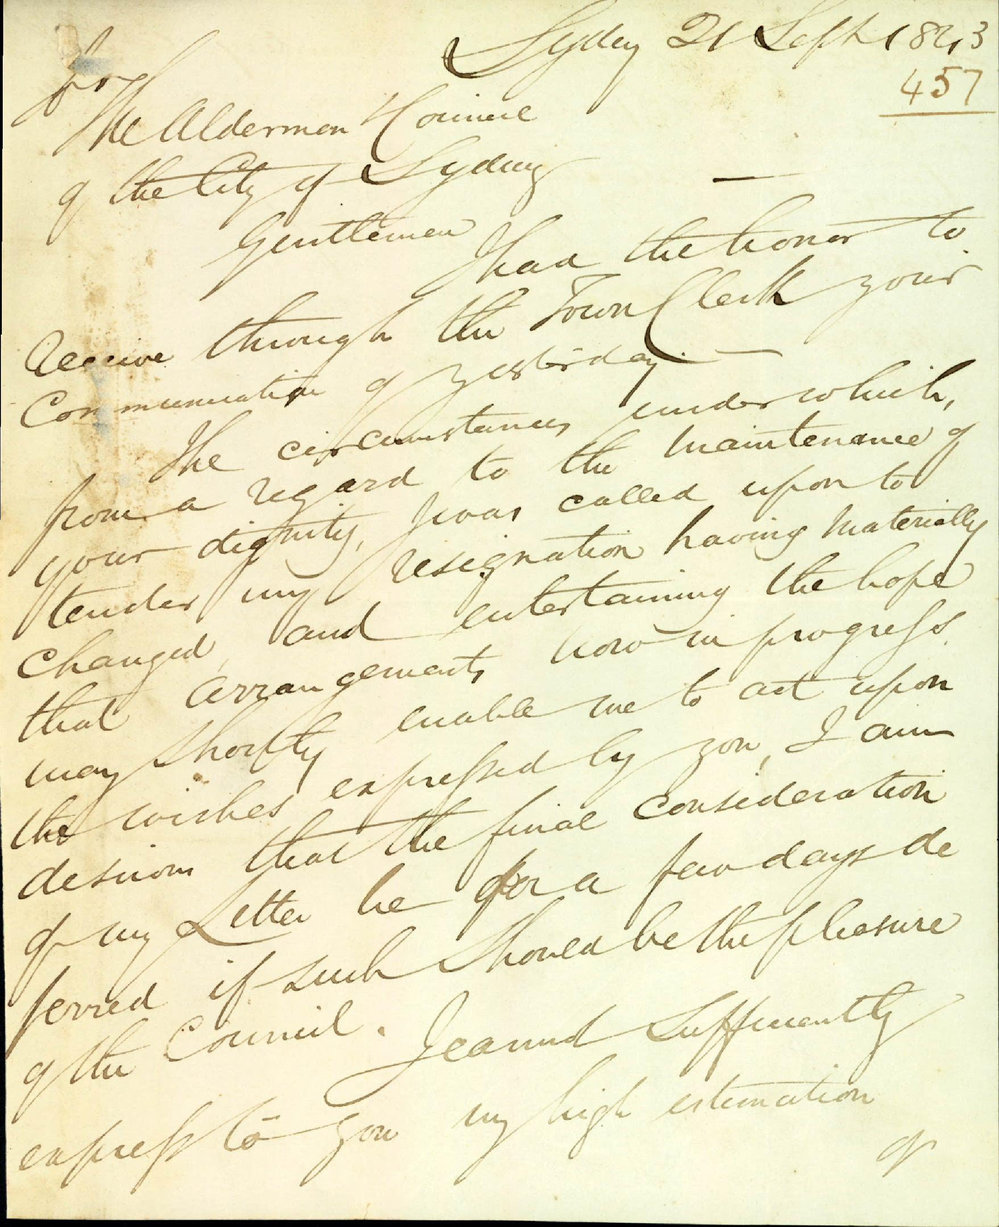 Sydney 21 Sept 1843
457
For
The Aldermen & Council
of the City of Sydney
Gentlemen
I had the honor to
receive through the Town Clerk your
Communication of yesterday. —
The circumstances under which,
from a regard to the maintenance of
your dignity, I was called upon to
tender my resignation having materially
changed, and entertaining the hope
that arrangements now in progress
may shortly enable me to act upon
the wishes expressed by you, I am
desirous that the final consideration
of my Letter be for a few days de
ferred if such should be the pleasure
of the Council. I cannot sufficiently
express to you my high estimation
of